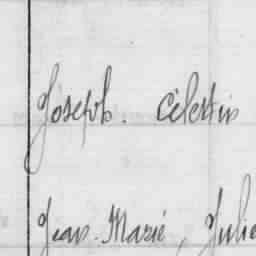 Joseph. Célestin
Jean-Marie, Julie